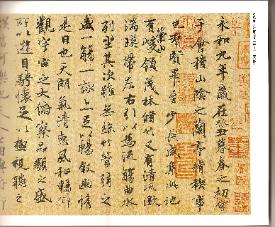 永和九年歲在癸丑暮春之初會
于會稽山陰之蘭亭脩稧事
也羣賢畢至少長咸集此地
有崇山峻領茂林脩竹又有清流激
湍暎帶左右引以為流觴曲水
列坐其次雖無絲竹管弦之
盛一觴一詠亦足以暢叙幽情
是日也天朗氣清惠風和暢仰
觀宇宙之大俯察品類之盛
所以遊目騁懷足以極視聽之